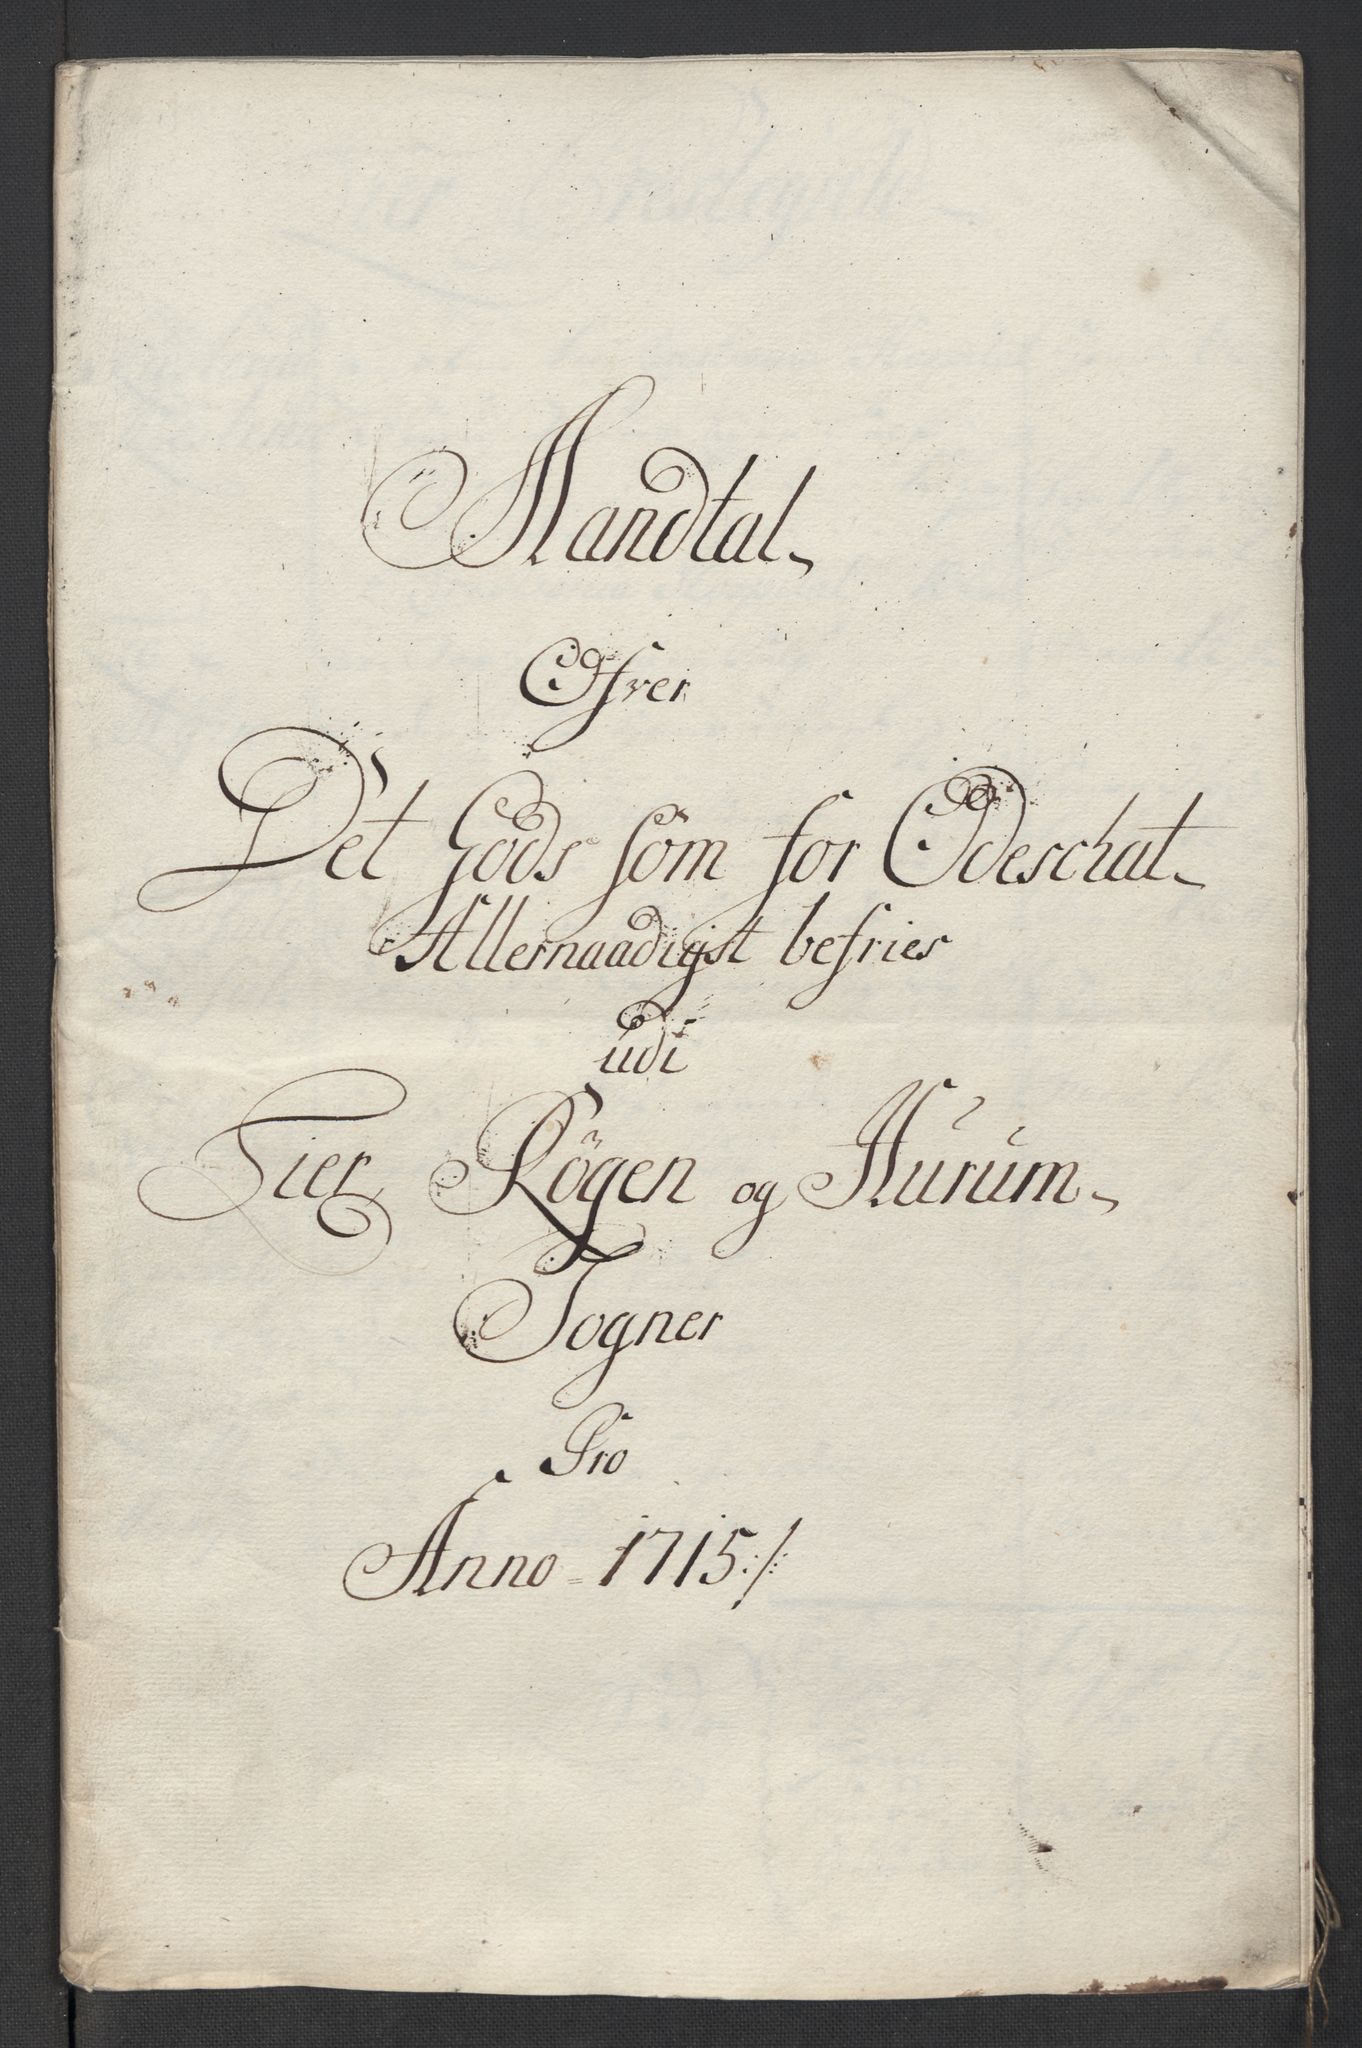 Mandtal
Ofver
Det Gods som for Ødeschat
Allernaadigst befries
udi
Lier Røgen og Hurum
Sogner
Pro
Anno 1715 ·/·